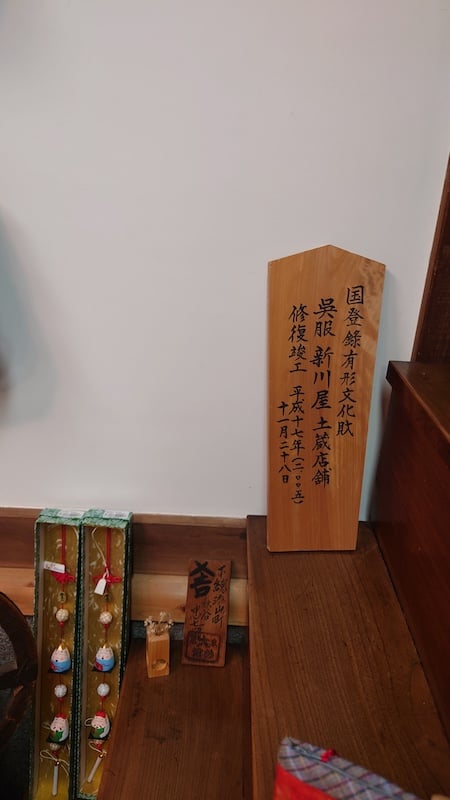 国登録有形文化財
呉服 新川屋 土蔵店舗
修復竣工 平成十七年(二〇〇五)
十一月二十八日